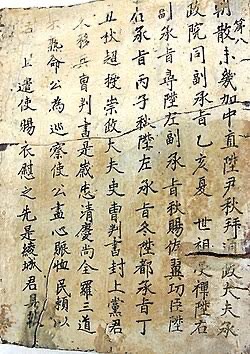 朝散未幾加中陞尹秋拜通政大夫承
政院同副承旨乙亥夏 世祖受禪陞右
副承旨尋陞左副承旨秋賜佐翼功臣陞
右承旨丙子秋陞左承旨冬陞都承旨丁
丑秋超授崇政大夫吏曹判書封上黨君
又移兵曹判書是歲忠清慶尚全羅三道
命公為巡察使公盡心賑恤民賴以
上遣使賜衣慰之先是綾城君具